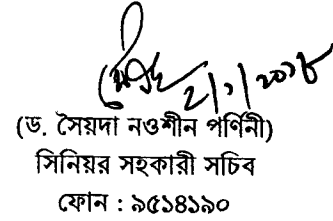 ২/১/২০১৮
(ড. সৈয়দা নওশীন পর্ণিনী)
সিনিয়র সহকারী সচিব
ফোন : ৯৫১৪১৯০